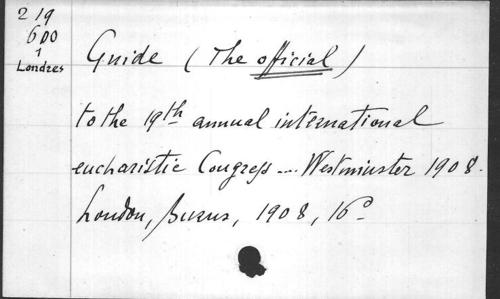 219
600
1
Londres
Guide (The official)
to the 19th annual international
eucharistic Congress ... Westminster 1908.
London, Burns, 1908, 16o